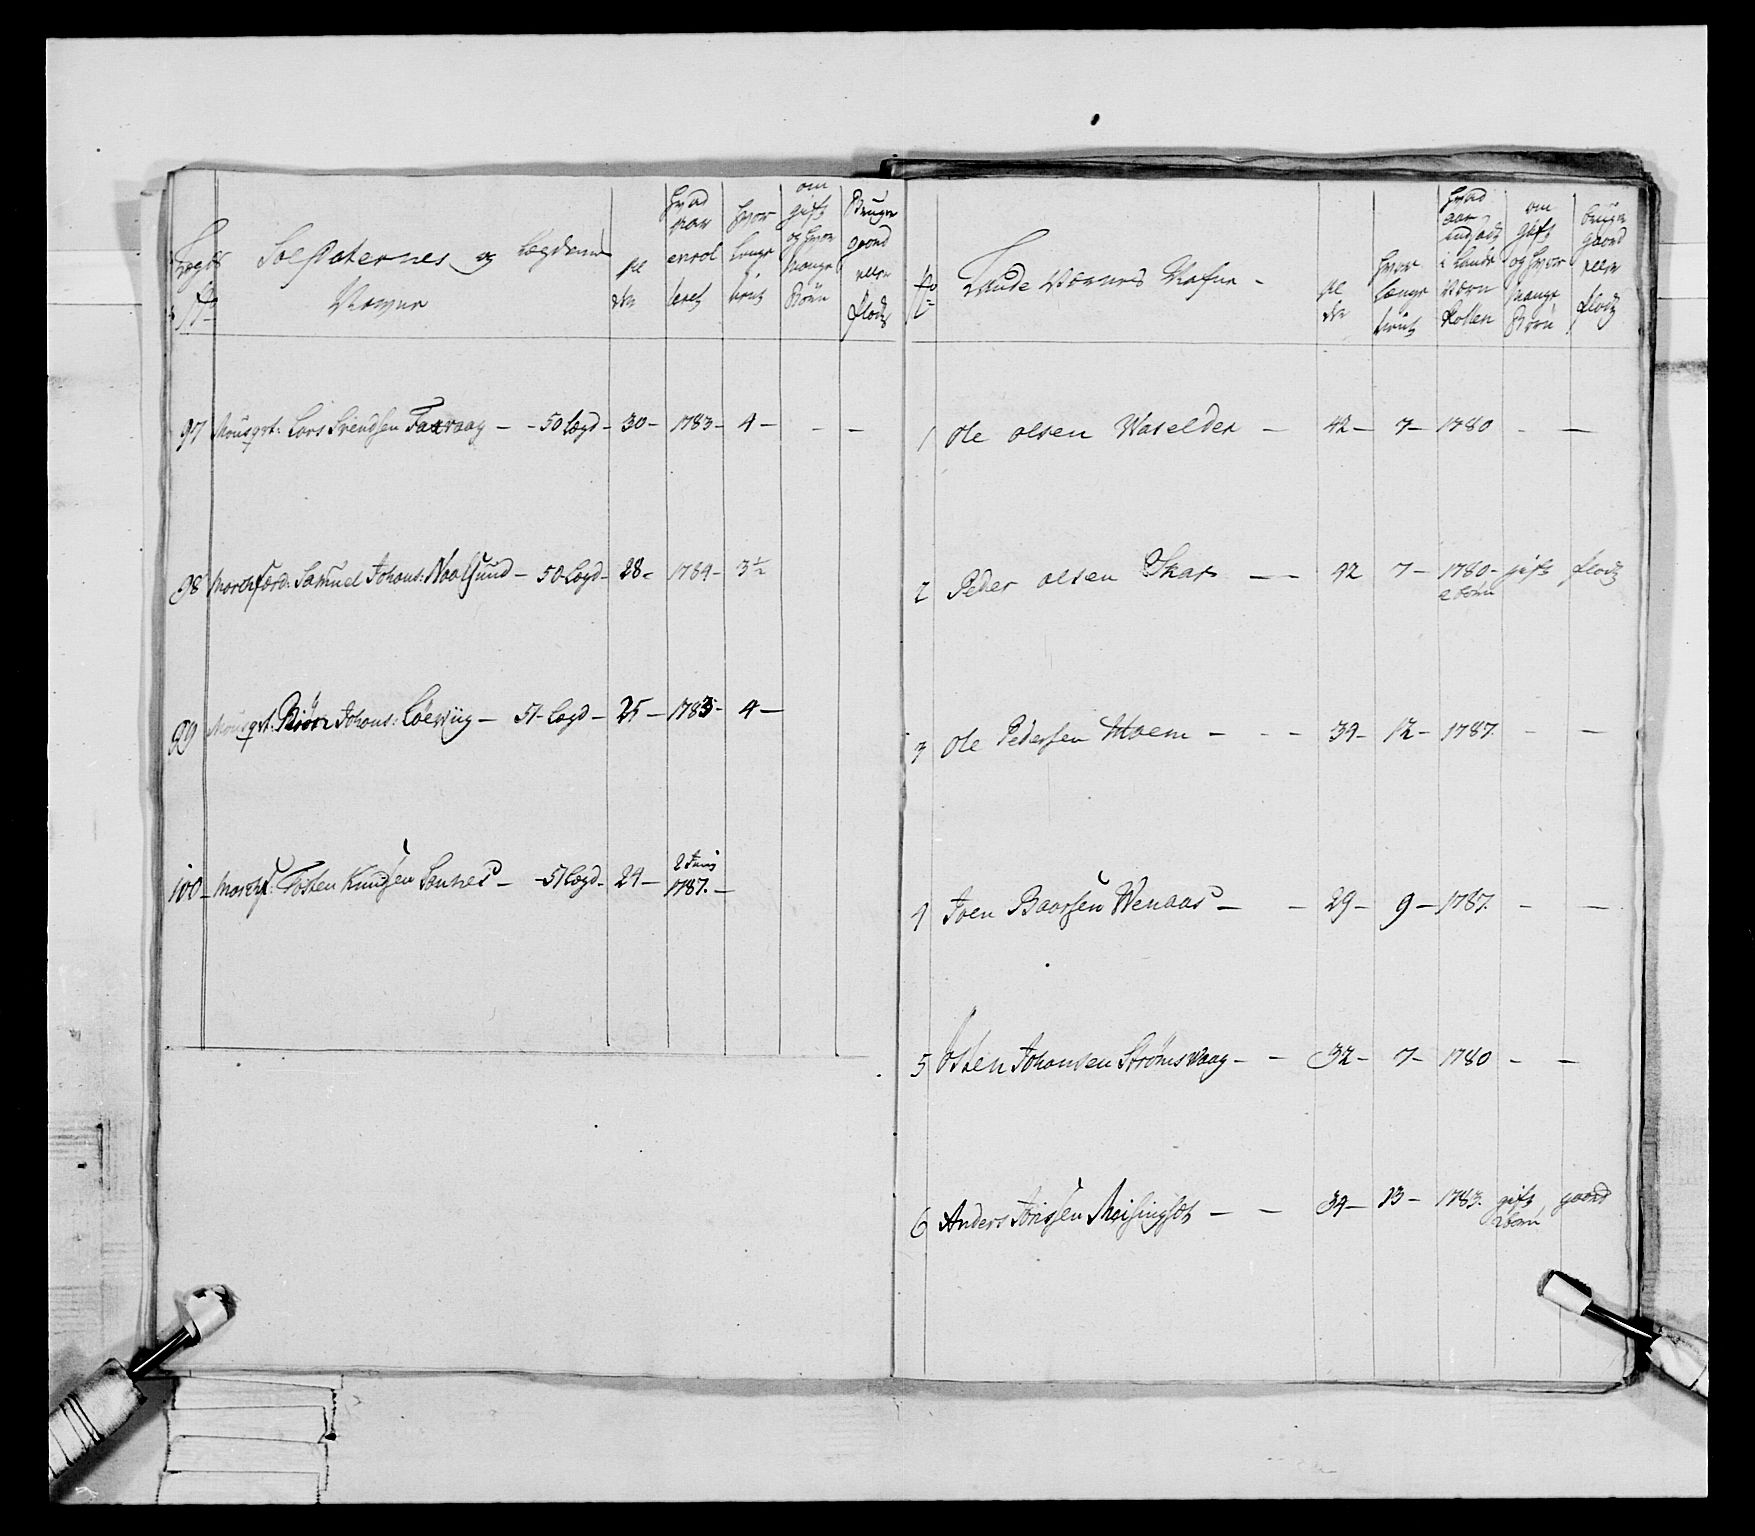 Soldaternes og Legdernes
Navne
Al
der
hvad
aar
enrol
leret
hvor
længe
tient
om
gift
og hvor
mange
Børn
Bruger
gaard
eller
Plads
97 Mousqrt: Lars Svendsen Faxvaag - - 50 Lægd - 30 - 1783 - 4 - - -
98 Morchsord: Samuel Johans: Naalsund - 50 Lægd - 28 - 1784 - 3½
99 Mousqrt: Biørn Johans: Løevig - 51 - Lægd - 25 - 1783 - 4 -
2 Junij
100 - Morchs: Tosten Knudsen Sannes - - 51 Lægd - 24 - 1787. -
No
Lande Værnes Nafne -
Al
der
hvor
længe
tient
hvad
aar
indsadt
i Lande
Værn
Rollen
om
gift
og hvor
mange
Børn
bruger
gaard
eller
plads
1 Ole Olsen Waselder - 42 - 7 - 1780 - -
2 Peder Olsen Skar - - 42 7 - 1780 - gift plads
2 børn
3 Ole Pedersen Moem - - - 34 - 12 - 1787. - -
4 Joen Baarsen Wenaas - - 29 - 9 - 1787. - -
5 Osten Johansen Strømsvaag - - 32 - 7 - 1780 - -
6 Anders Jonssen Meisingset - - 34 - 13 - 1783. gift gaard
2 børn